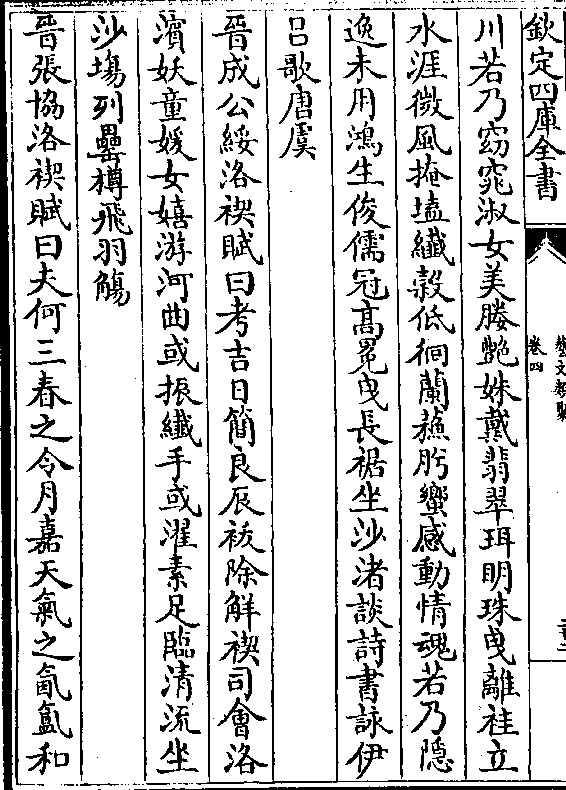 欽定四庫全書
藝文類聚
卷四
川若乃窈窕淑女美媵艶姝戴翡翠珥明珠曳離袿立
水涯微風掩壒纎糓低徊蘭蘓肹蠁感動情魂若乃隠
逸未用鴻生俊儒冠髙冕曳長裾坐沙渚談詩書詠伊
吕歌唐虞
晉成公綏洛禊賦曰考吉日簡良辰祓除解禊司會洛
濱妖童媛女嬉游河曲或振纎手或濯素足臨清流坐
沙塲列罍樽飛羽觴
晉張協洛禊賦曰夫何三春之令月嘉天氣之氤氲和